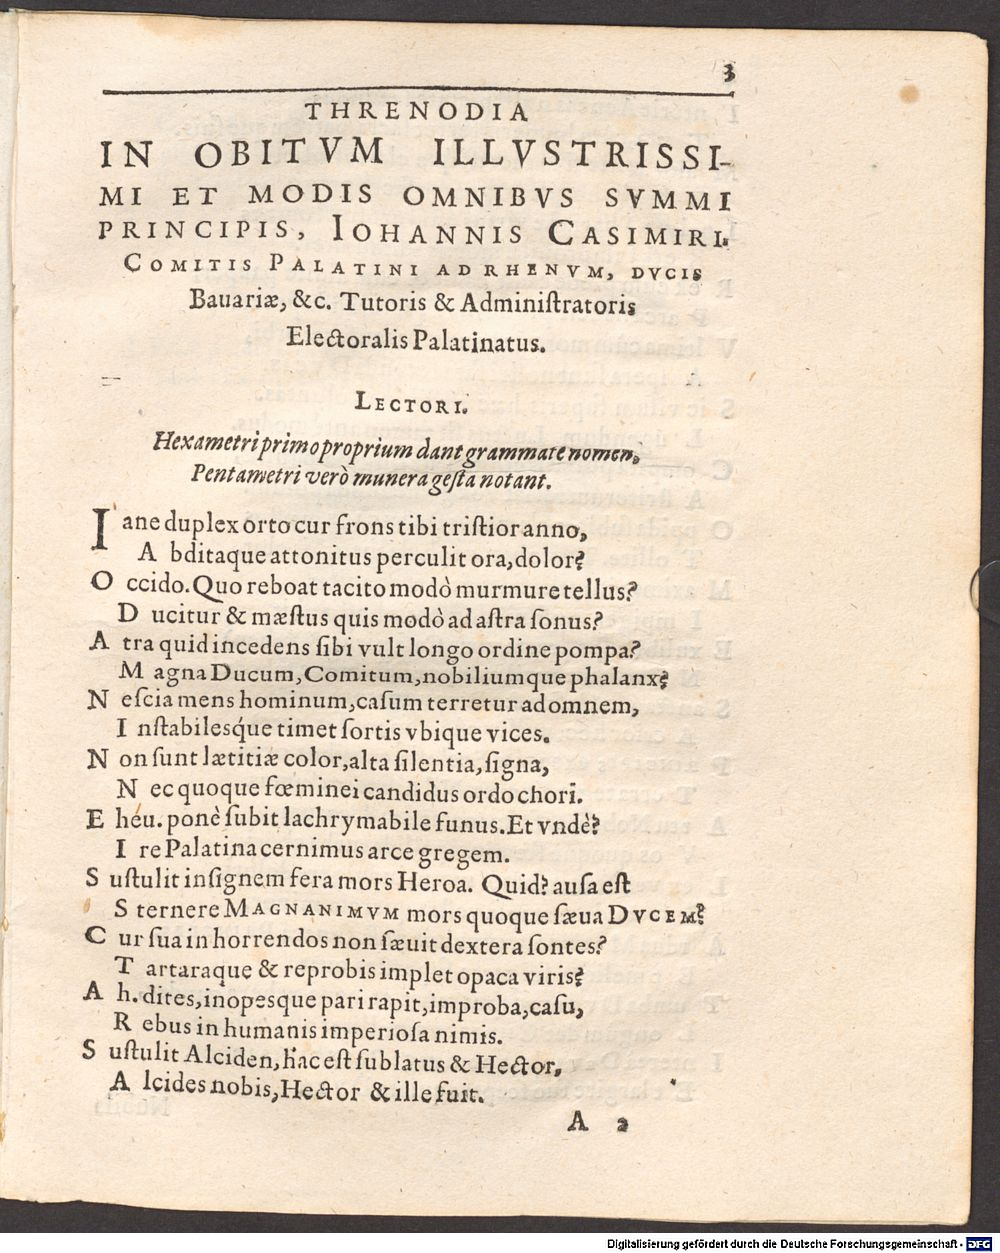 3
THRENODIA
IN OBITVM ILLVSTRISSI-
MI ET MODIS OMNIBVS SVMMI
PRINCIPIS, IOHANNIS CASIMIRI.
COMITIS PALATINI AD RHENVM, DVCIS
Bauariæ, &c. Tutoris & Adminiſtratoris
Electoralis Palatinatus.
LECTORI.
Hexametri primo proprium dant grammate nomen,
Pentametri verò munera geſta notant.
Iane duplex orto cur frons tibi triſtior anno,
A bditaque attonitus perculit ora, dolor?
O ccido. Quo reboat tacito modò murmure tellus?
D ucitur & mæſtus quis modò ad aſtra ſonus?
A tra quid incedens ſibi vult longo ordine pompa?
M agna Ducum, Comitum, nobiliumque phalanx?
N eſcia mens hominum, caſum terretur ad omnem,
I nſtabilesq́ue timet ſortis vbique vices.
N on ſunt lætitiæ color, alta ſilentia, ſigna,
N ec quoque fœminei candidus ordo chori.
E héu. ponè ſubit lachrymabile funus. Et vndè?
I re Palatina cernimus arce gregem.
S uſtulit inſignem fera mors Heroa. Quid? auſa eſt
S ternere MAGNANIMVM mors quoque ſæua DVCEM?
C ur ſua in horrendos non ſæuit dextera ſontes?
T artaraque & reprobis implet opaca viris?
A h. dites, inopesque pari rapit, improba, caſu,
R ebus in humanis imperioſa nimis.
S uſtulit Alciden, hac eſt ſublatus & Hector,
A lcides nobis, Hector & ille fuit.
A 2
Digitalisierung gefördert durch die Deutsche Forschungsgemeinschaft - DFG